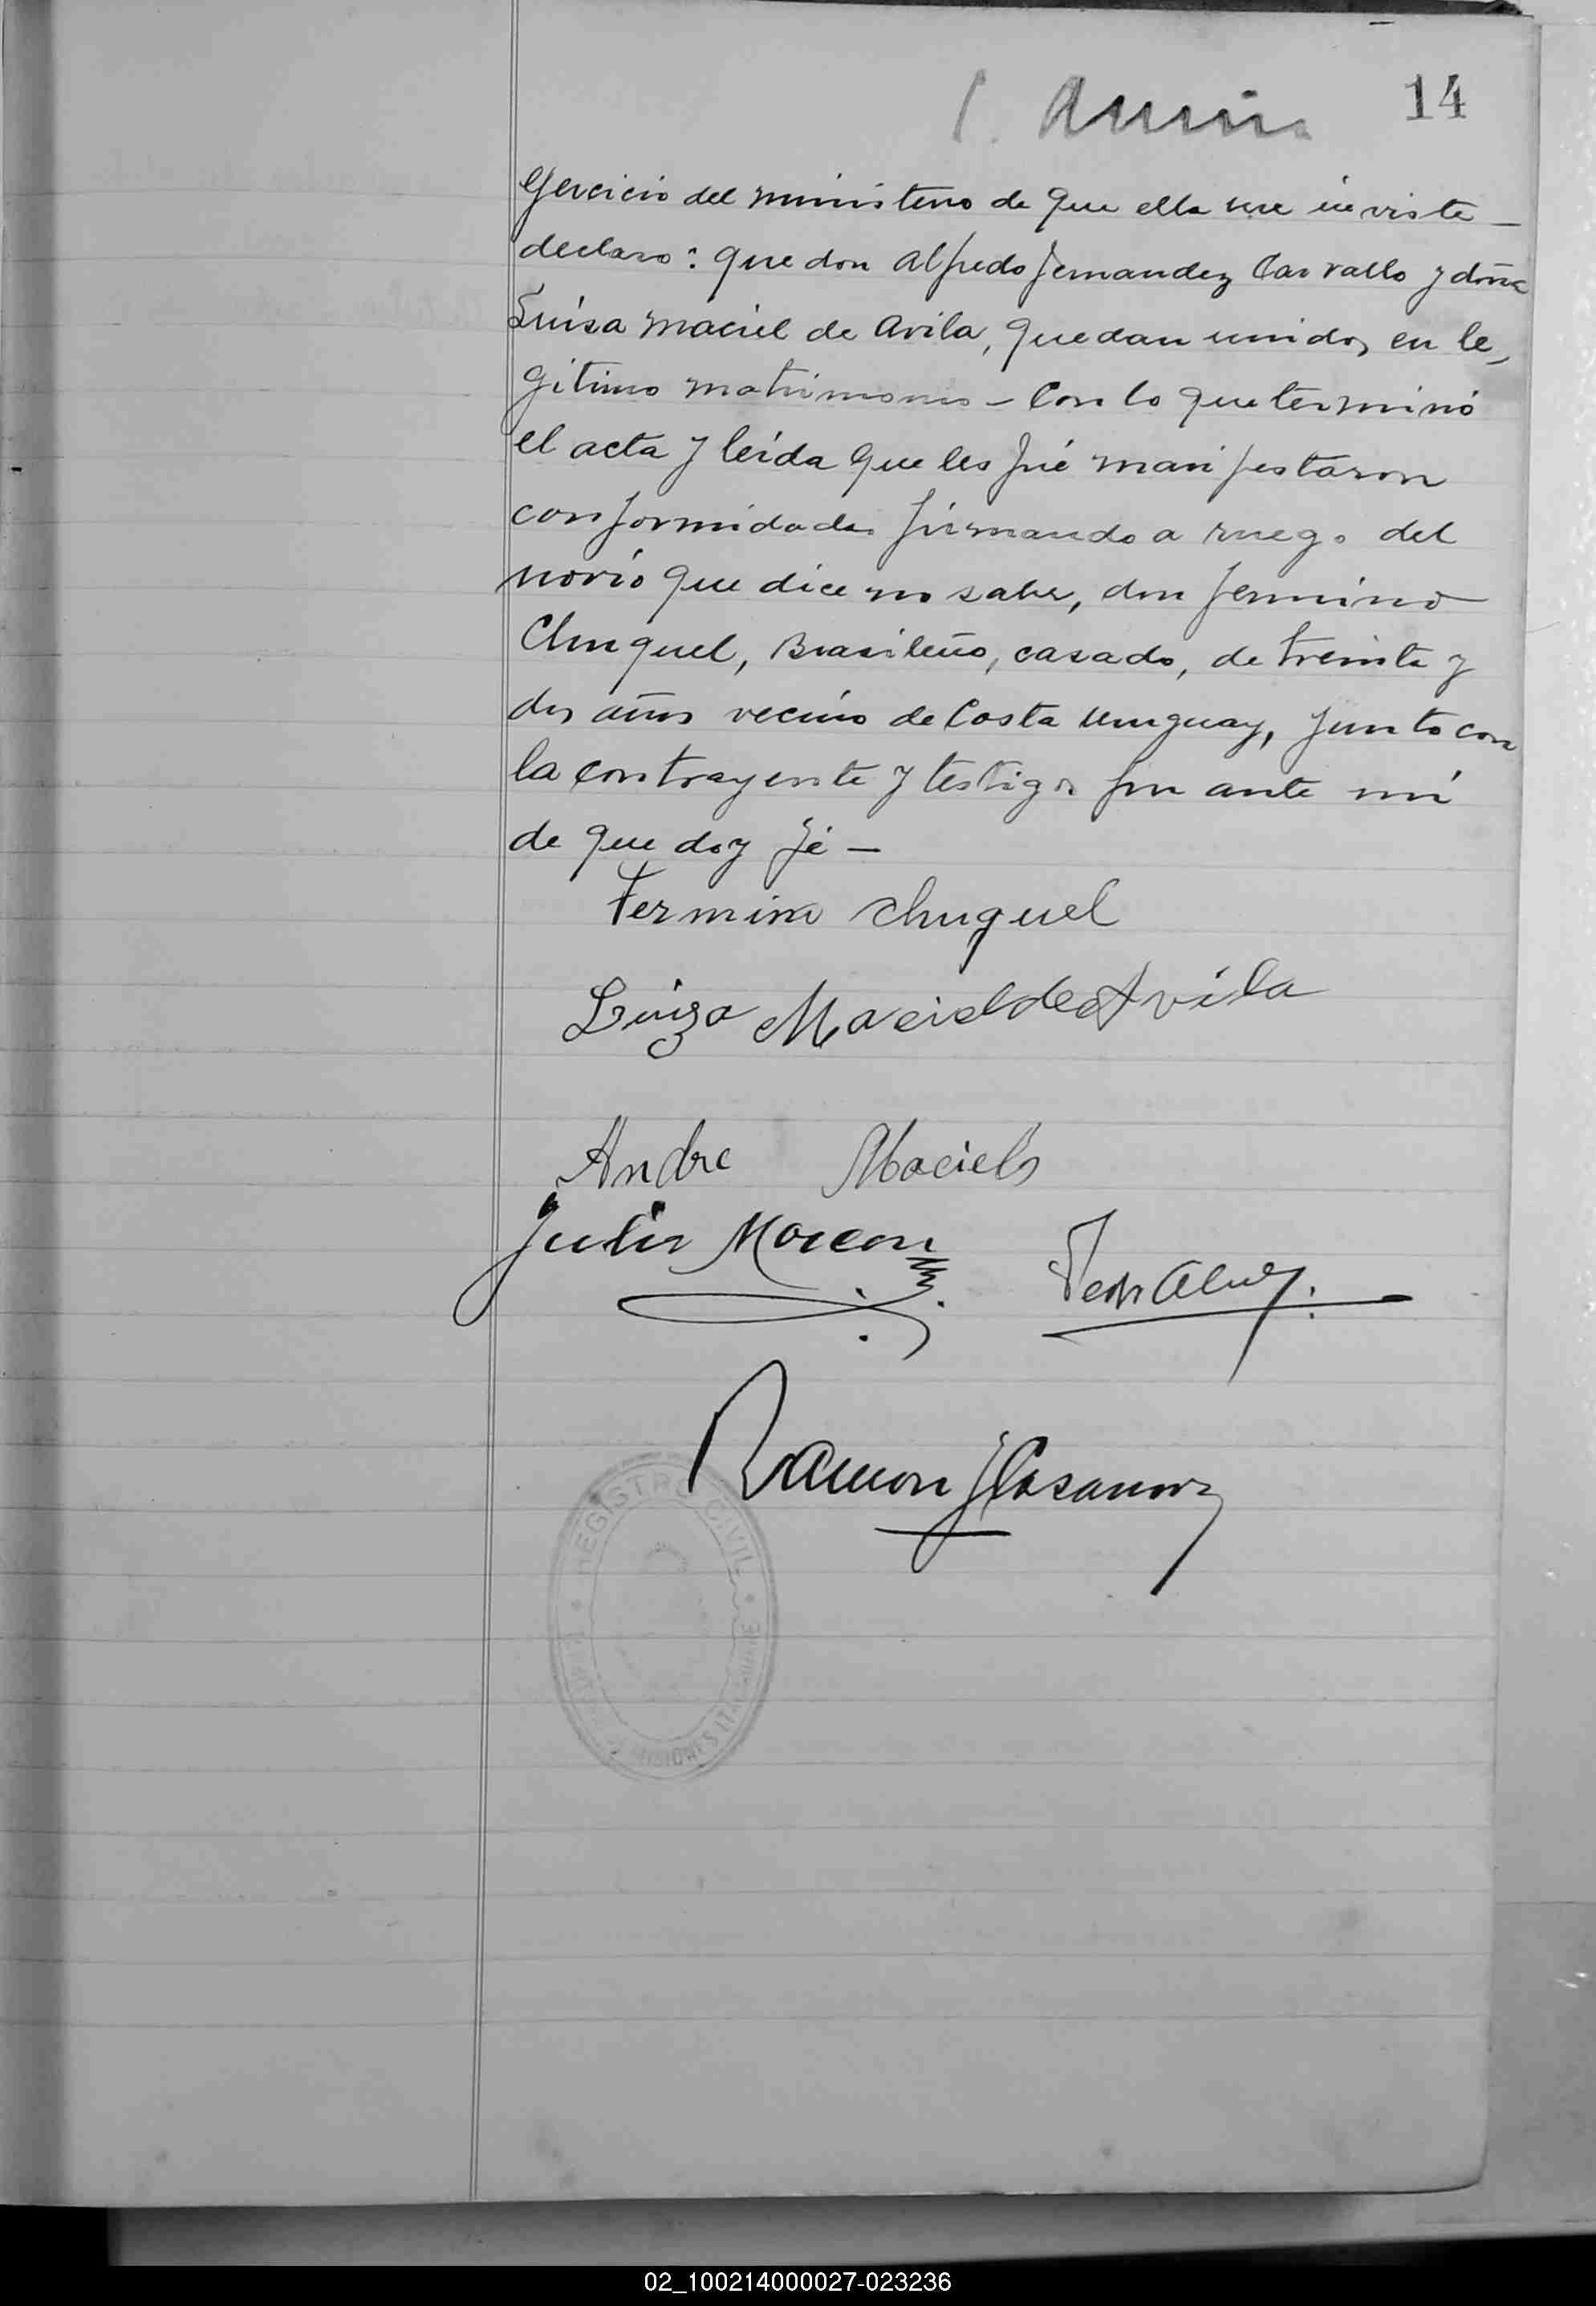 14
ejercicio del ministerio de que ella me inviste —
declaro: que don Alfredo Fernandez Carvallo y doña
Luisa Maciel de Avila, quedan unidos en le-
gitimo matrimonio — Con lo que terminó
el acta y leida que les fué manifestaron
conformidad firmando a ruego del
novio que dice no saber, don Fermino
Chuquel, Brasileño, casado, de treinta y
dos años vecino de Costa Uruguay, junto con
la contrayente y testigos por ante mi
de que doy fé —
Fermino Chuquel
Luiza Maciel de Avila
Andre Maciel
Julio
Ramon J Casanova
REGISTRO CIVIL
MISIONES
02_100214000027-023236